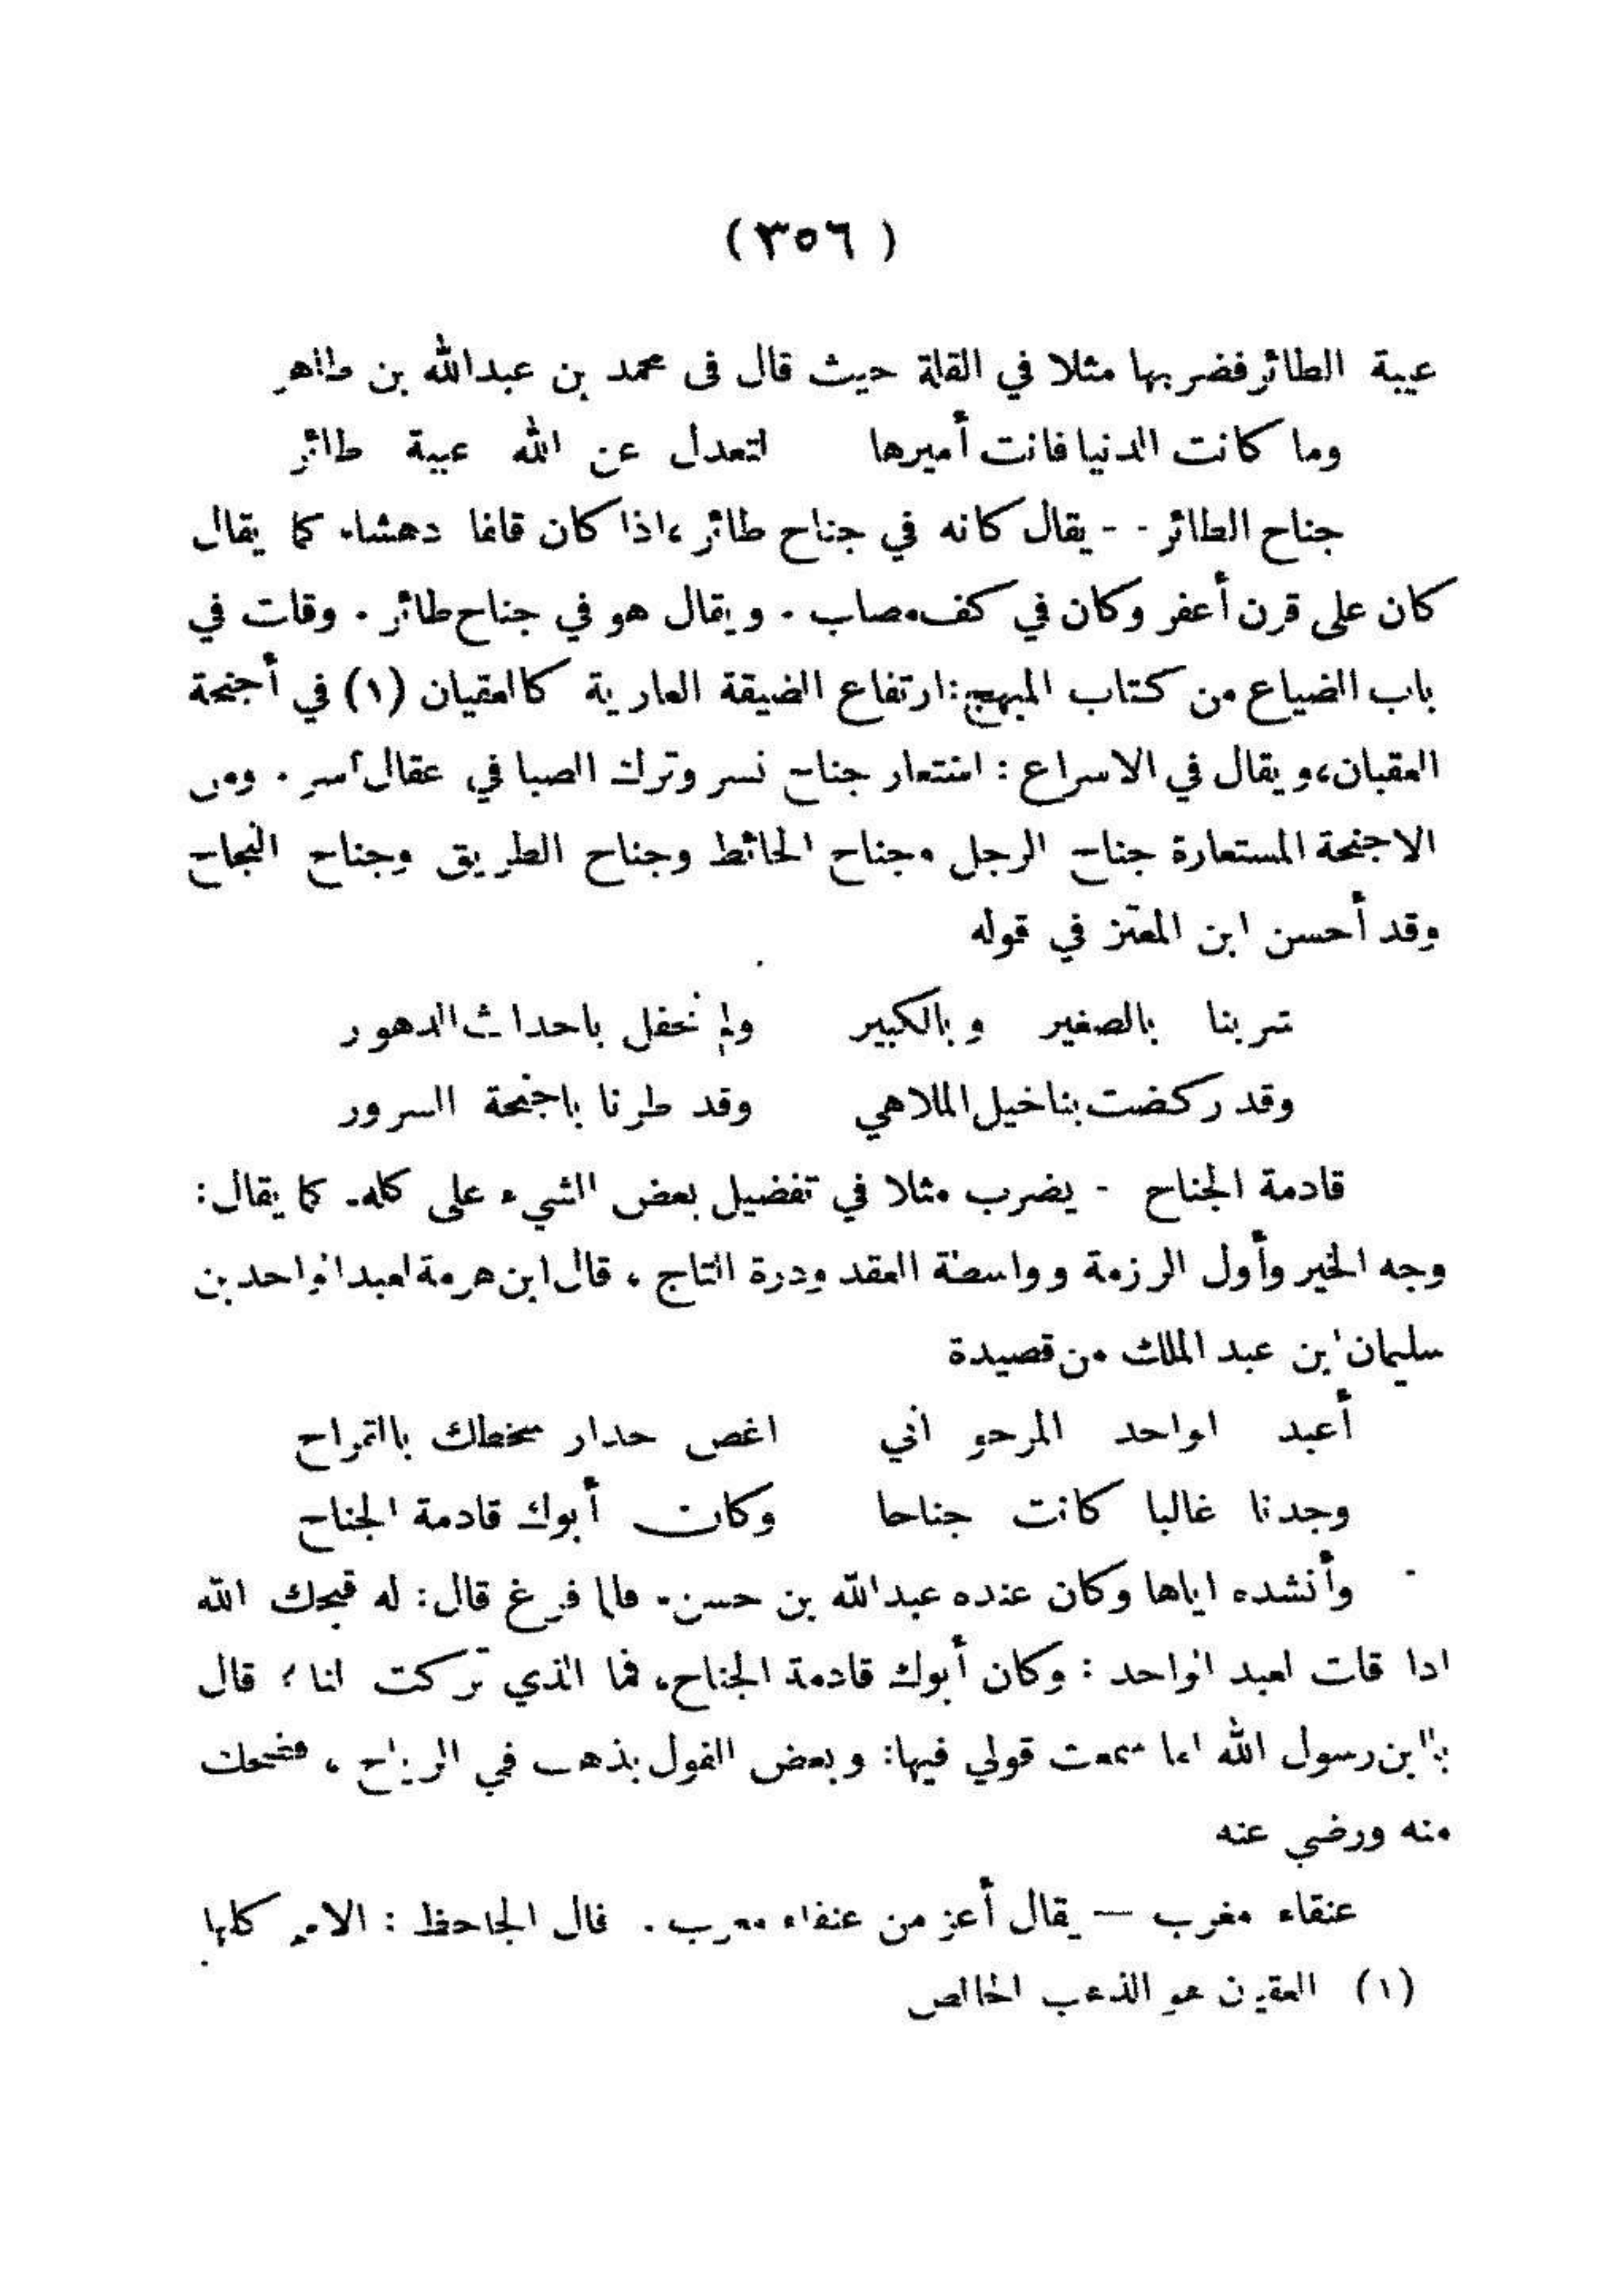 ( ٣٥٦ )
عيبة الطائر فضر بها مثلا في القلة حيث قال فى محمد بن عبدالله بن طاهر
وما كانت الدنيا فانت أميرها لتعدل عن الله عيبة طائر
جناح الطائر - - يقال كانه في جناح طائر ،اذا كان قلقا دهشا. كما يقال
كان على قرن أعفر وكان في كف مصاب . ويقال هو في جناح طائر . وقلت في
باب الضياع من كتاب المبهج: ارتفاع الضيقة العارية كالعقيان (١) في أجنحة
العقبان، ويقال في الاسراع : استعار جناح نسر وترك الصبا في عقال أسر . ومن
الاجنحة المستعارة جناح الرجل وجناح الحائط وجناح الطريق وجناح النجاح
وقد أحسن ابن المعتز في قوله
شربنا بالصغير وبالكبير ولم نحفل باحداث الدهور
وقد ركضت بنا خيل الملاهي وقد طرنا باجنحة السرور
قادمة الجناح - يضرب مثلا في تفضيل بعض الشيء على كله. كما يقال:
وجه الخير وأول الرزمة وواسطة العقد ودرة التاج ، قال ابن هرمة لعبد الواحد بن
سليمان بن عبد الملك من قصيدة
أعبد الواحد المرجو اني اغص حذار سخطك بالقراح
وجدنا غالبا كانت جناحا وكان أبوك قادمة الجناح
وأنشده اياها وكان عنده عبد الله بن حسن. فلما فرغ قال: له قبحك الله
اذا قلت لعبد الواحد : وكان أبوك قادمة الجناح، فما الذي تركت لنا ؟ قال
يا ابن رسول الله اما سمعت قولي فيها: وبعض القول يذهب في الرياح ، فضحك
منه ورضي عنه
عنقاء مغرب — يقال أعز من عنقاء مغرب . قال الجاحظ : الامم كلها
(١) العقيان هو الذهب الخالص